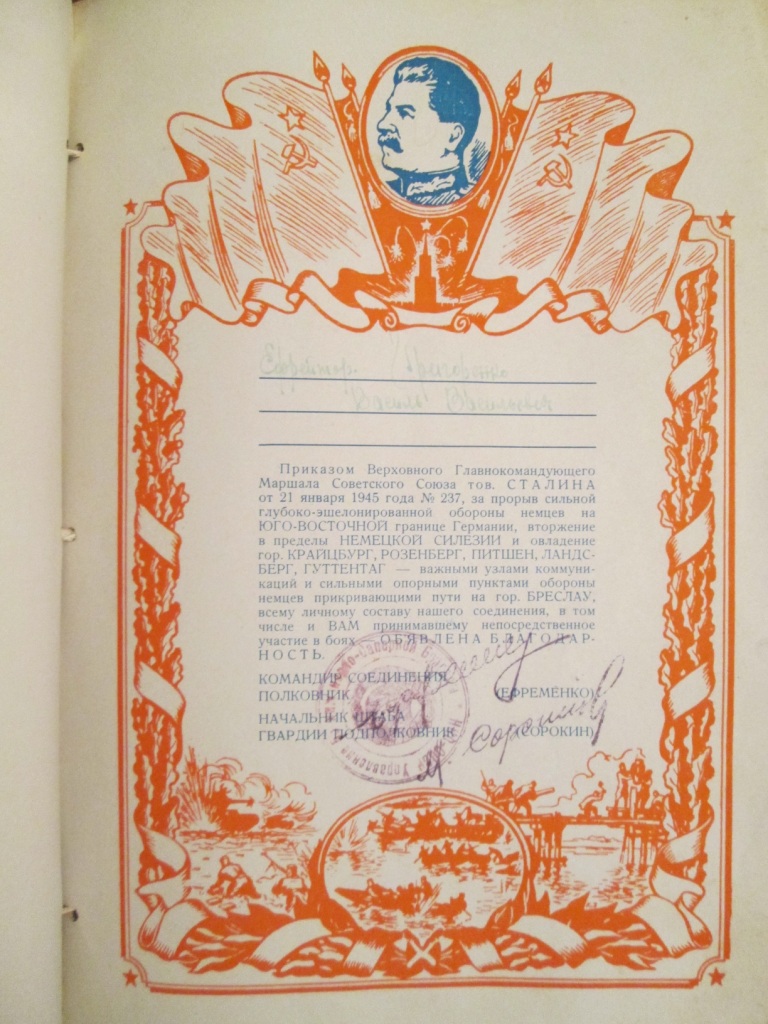 Ефрейтор Григоренко
Василь Васильевич
Приказом Верховного Главнокомандующего
Маршала Советского Союза тов. СТАЛИНА
от 21 января 1945 года № 237, за прорыв сильной
глубоко-эшелонированной обороны немцев на
ЮГО-ВОСТОЧНОЙ границе Германии, вторжение
в пределы НЕМЕЦКОЙ СИЛЕЗИИ и овладение
гор. КРАЙЦБУРГ, РОЗЕНБЕРГ, ПИТШЕН, ЛАНДС-
БЕРГ, ГУТТЕНТАГ — важными узлами коммуни-
каций и сильными опорными пунктами обороны
немцев прикривающими пути на гор. БРЕСЛАУ,
всему личному составу нашего соединения, в том
числе и ВАМ принимавшему непосредственное
участие в боях — ОБЯВЛЕНА БЛАГОДАР-
НОСТЬ.
КОМАНДИР СОЕДИНЕНИЯ
ПОЛКОВНИК (ЕФРЕМЕНКО)
НАЧАЛЬНИК ШТАБА
ГВАРДИИ ПОДПОЛКОВНИК (СОРОКИН)
М Сорокин
Управление